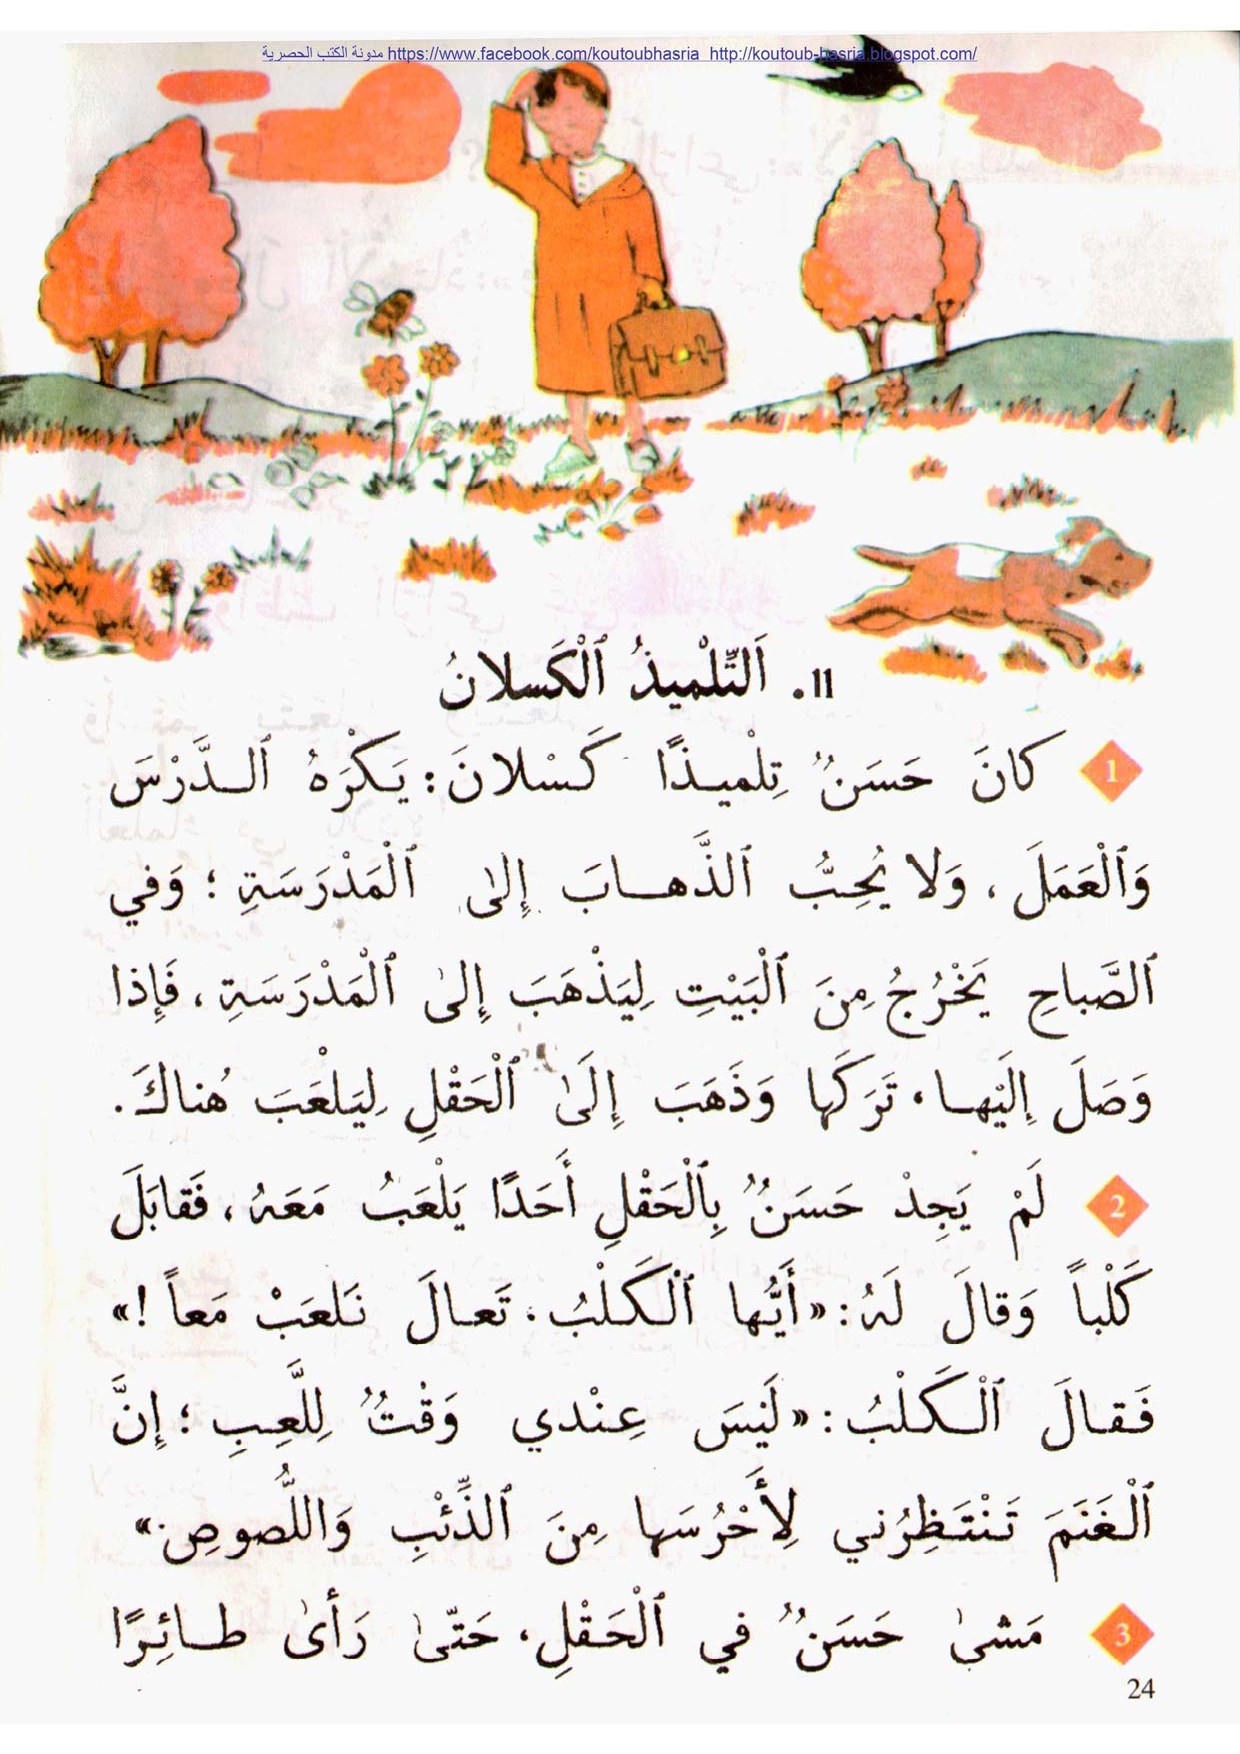 مدونة الكتب الحصرية https://www.facebook.com/koutoubhasria http://koutoub-hasria.blogspot.com/
11. اَلتِّلْمِيذُ ٱلْكَسلانُ
1 كانَ حَسَنٌ تِلْميذًا كَسْلانَ: يَكْرَهُ ٱلدَّرْسَ
وَٱلْعَمَلَ، وَلا يُحِبُّ ٱلذَّهابَ إِلىٰ ٱلْمَدْرَسَةِ ؛ وَفي
ٱلصَّباحِ يَخْرُجُ مِنَ ٱلْبَيْتِ لِيَذْهَبَ إِلىٰ ٱلْمَدْرَسَةِ، فَإِذا
وَصَلَ إِلَيْها، تَرَكَها وَذَهَبَ إِلَىٰ ٱلْحَقْلِ لِيَلْعَبَ هُناكَ.
2 لَمْ يَجِدْ حَسَنٌ بِٱلْحَقْلِ أَحَدًا يَلْعَبُ مَعَهُ، فَقابَلَ
كَلْباً وَقالَ لَهُ: «أَيُّها ٱلْكَلْبُ، تَعالَ نَلعَبْ مَعاً !»
فَقالَ ٱلْكَلْبُ: «لَيسَ عِنْدي وَقْتٌ لِلَّعِبِ ؛ إِنَّ
ٱلْغَنَمَ تَنْتَظِرُني لِأَحْرُسَها مِنَ ٱلذِّئْبِ وَاللُّصوصِ.»
3 مَشىٰ حَسَنٌ في ٱلْحَقْلِ، حَتّىٰ رَأىٰ طائِرًا
24